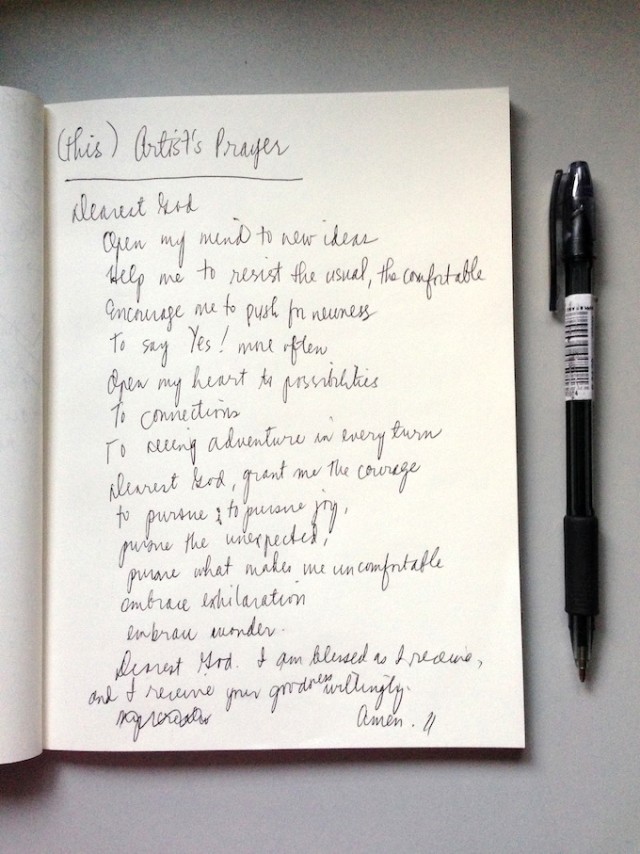 (this) Artist's Prayer
Dearest God
Open my mind to new ideas
Help me to resist the usual, the comfortable
Encourage me to push for newness
To say Yes! more often
Open my heart to possibilities
To connections
To seeing adventure in every turn
Dearest God, grant me the courage
to pursue & to pursue joy,
pursue the unexpected,
pursue what makes me uncomfortable
embrace exhilaration
embrace wonder.
Dearest God. I am blessed as I receive,
and I receive your goodness willingly.
Amen. //